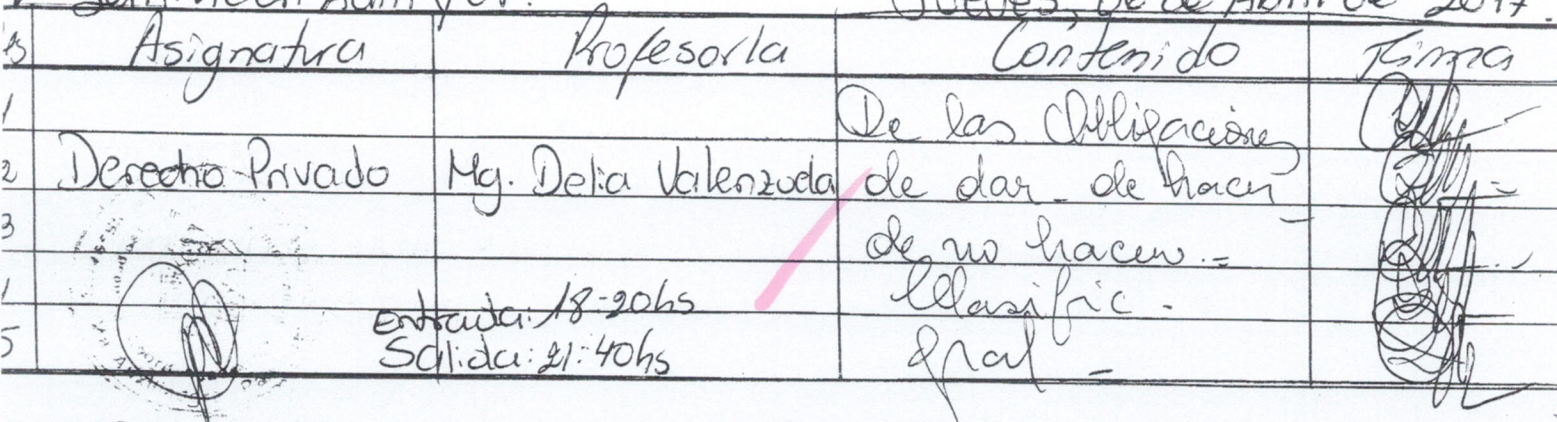 Jueves, 06 de Abril de 2017.
Asignatura Profesor/a Contenido Firma
1 De las Obligaciones
2 Derecho Privado Mg. Delia Valenzuela de dar - de hacer
3 de no hacer.=
Clasific.
Entrada: 18-20hs
5 Salida: 21:40hs gral -